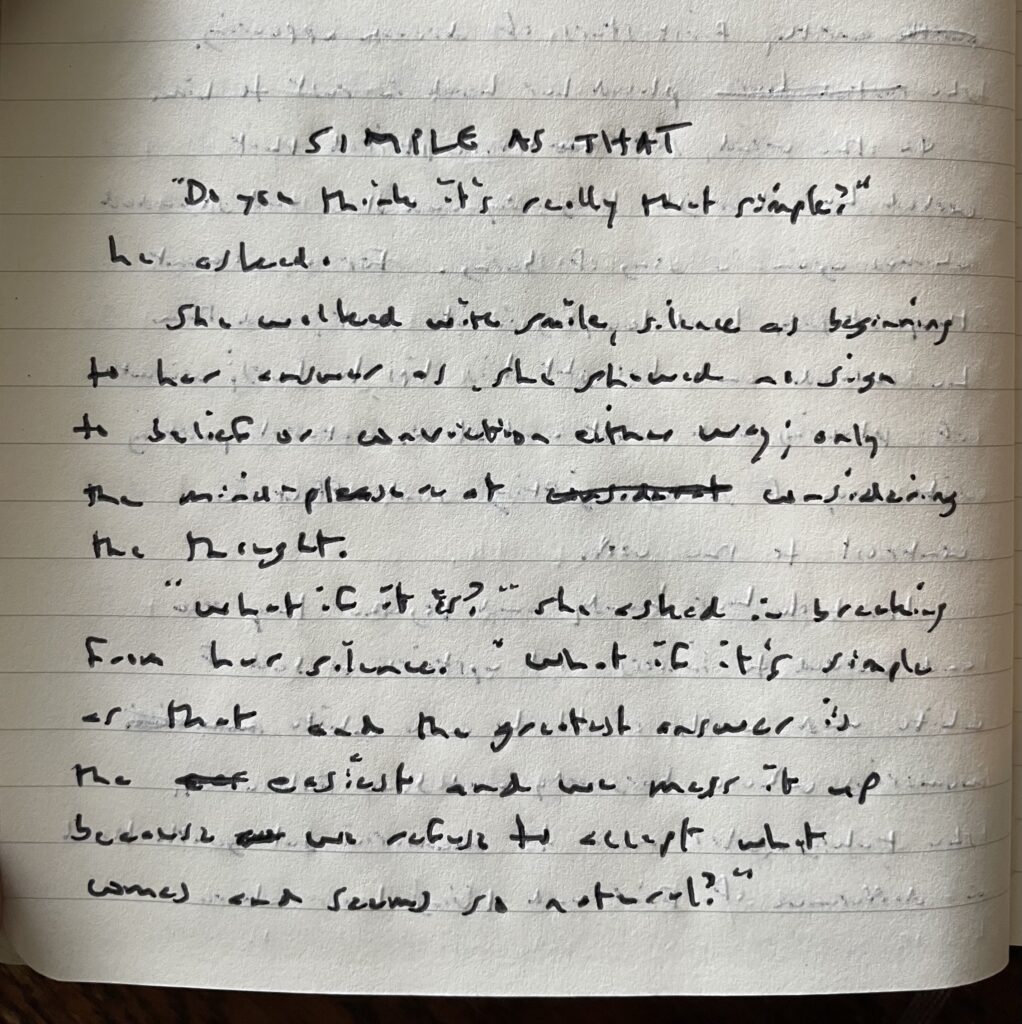 SIMPLE AS THAT
"Do you think it's really that simple?"
he asked.
She walked with smile, silence as beginning
to her answer as she showed no sign
to belief or conviction either way; only
the mind-pleasure at considering
the thought.
"What if it is?" she asked in breaking
from her silence. "What if it's simple
as that and the greatest answer is
the easiest and we mess it up
because we refuse to accept what
comes and seems so natural?"